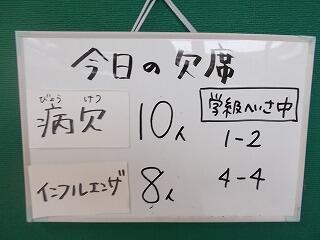 今日の欠席
びょう けつ
病欠 10人
学級へいさ中
1-2
インフルエンザ 8人
4-4